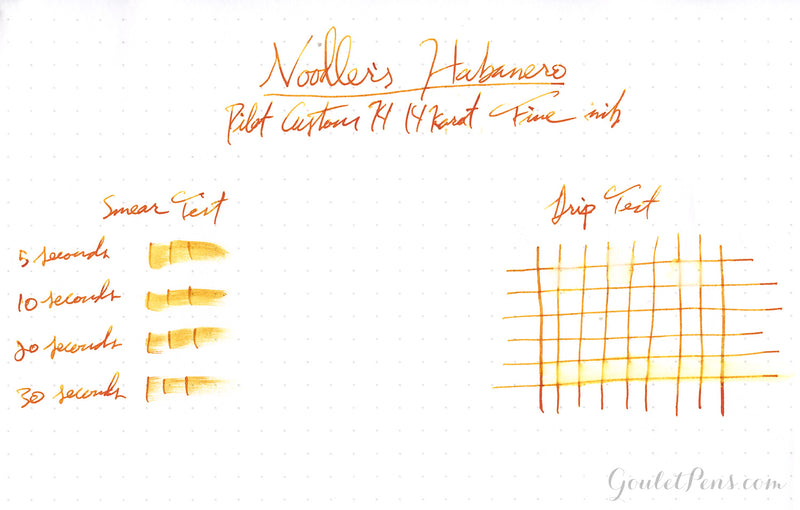 Noodler's Habanero
Pilot Custom 74 14 Karat Fine nib
Smear Test
5 seconds
10 seconds
20 seconds
30 seconds
Drip Test
GouletPens.com